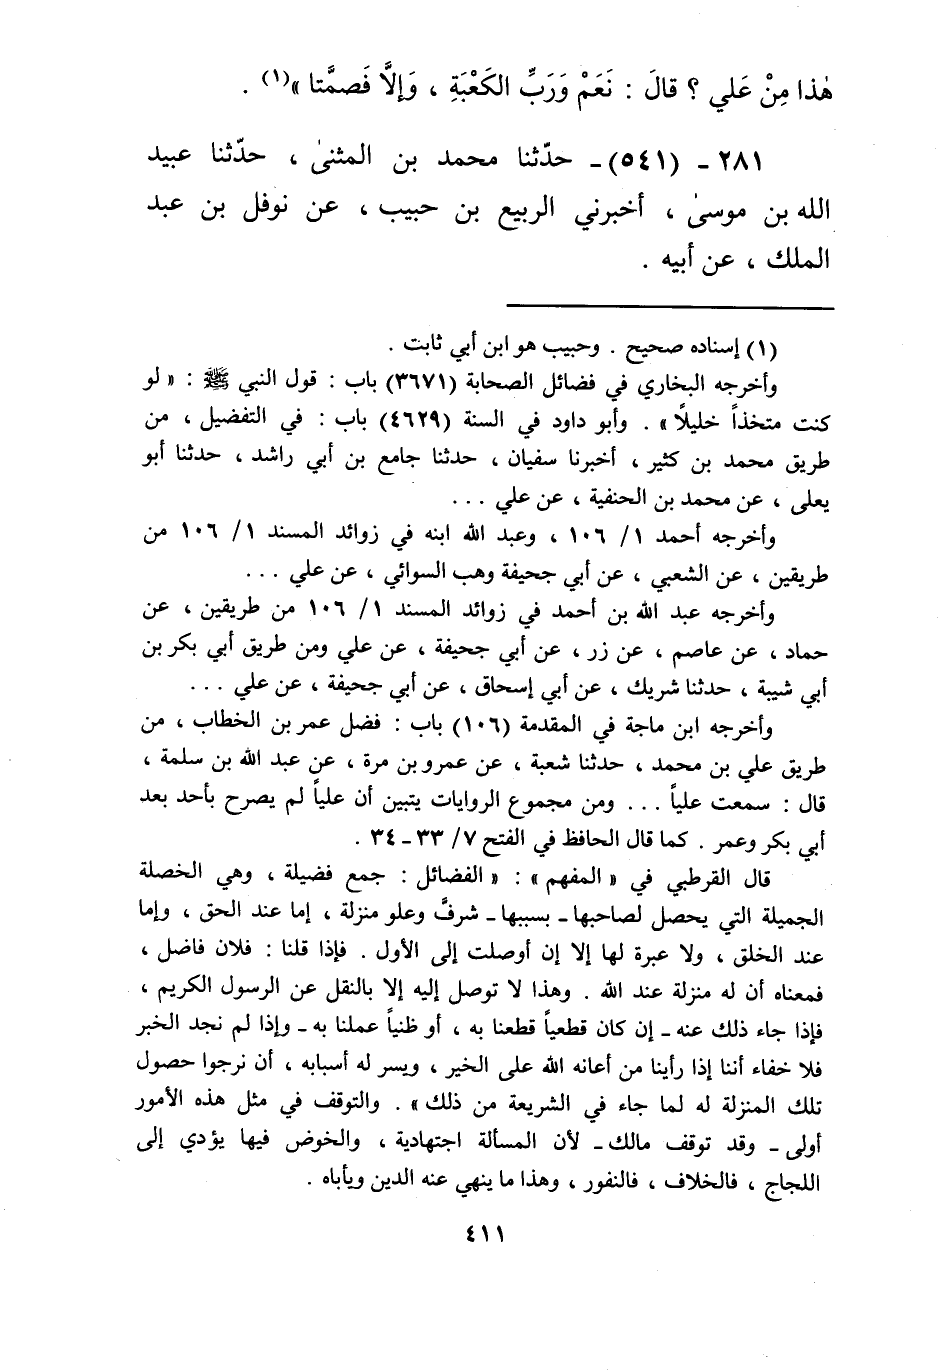 هٰذا مِنْ عَلي ؟ قالَ : نَعَمْ وَرَبِّ الكَعْبَةِ ، وَإِلاَّ فَصمَّتا »(١) .
٢٨١ ـ (٥٤١) ـ حدّثنا محمد بن المثنىٰ ، حدّثنا عبيد
الله بن موسىٰ ، أخبرني الربيع بن حبيب ، عن نوفل بن عبد
الملك ، عن أبيه .
(١) إسناده صحيح . وحبيب هو ابن أبي ثابت .
وأخرجه البخاري في فضائل الصحابة (٣٦٧١) باب : قول النبي ﷺ : « لو
كنت متخذاً خليلاً » . وأبو داود في السنة (٤٦٢٩) باب : في التفضيل ، من
طريق محمد بن كثير ، أخبرنا سفيان ، حدثنا جامع بن أبي راشد ، حدثنا أبو
يعلى ، عن محمد بن الحنفية ، عن علي ...
وأخرجه أحمد ١/ ١٠٦ ، وعبد الله ابنه في زوائد المسند ١/ ١٠٦ من
طريقين ، عن الشعبي ، عن أبي جحيفة وهب السوائي ، عن علي ...
وأخرجه عبد الله بن أحمد في زوائد المسند ١/ ١٠٦ من طريقين ، عن
حماد ، عن عاصم ، عن زر ، عن أبي جحيفة ، عن علي ومن طريق أبي بكر بن
أبي شيبة ، حدثنا شريك ، عن أبي إسحاق ، عن أبي جحيفة ، عن علي ...
وأخرجه ابن ماجة في المقدمة (١٠٦) باب : فضل عمر بن الخطاب ، من
طريق علي بن محمد ، حدثنا شعبة ، عن عمرو بن مرة ، عن عبد الله بن سلمة ،
قال : سمعت علياً ... ومن مجموع الروايات يتبين أن علياً لم يصرح بأحد بعد
أبي بكر وعمر . كما قال الحافظ في الفتح ٧/ ٣٣ ـ ٣٤ .
قال القرطبي في « المفهم » : « الفضائل : جمع فضيلة ، وهي الخصلة
الجميلة التي يحصل لصاحبها ـ بسببها ـ شرفٌ وعلو منزلة ، إما عند الحق ، وإما
عند الخلق ، ولا عبرة لها إلا إن أوصلت إلى الأول . فإذا قلنا : فلان فاضل ،
فمعناه أن له منزلة عند الله . وهذا لا توصل إليه إلا بالنقل عن الرسول الكريم ،
فإذا جاء ذلك عنه ـ إن كان قطعياً قطعنا به ، أو ظنياً عملنا به ـ وإذا لم نجد الخبر
فلا خفاء أننا إذا رأينا من أعانه الله على الخير ، ويسر له أسبابه ، أن نرجوا حصول
تلك المنزلة له لما جاء في الشريعة من ذلك » . والتوقف في مثل هذه الأمور
أولى ـ وقد توقف مالك ـ لأن المسألة اجتهادية ، والخوض فيها يؤدي إلى
اللجاج ، فالخلاف ، فالنفور ، وهذا ما ينهي عنه الدين ويأباه .
٤١١